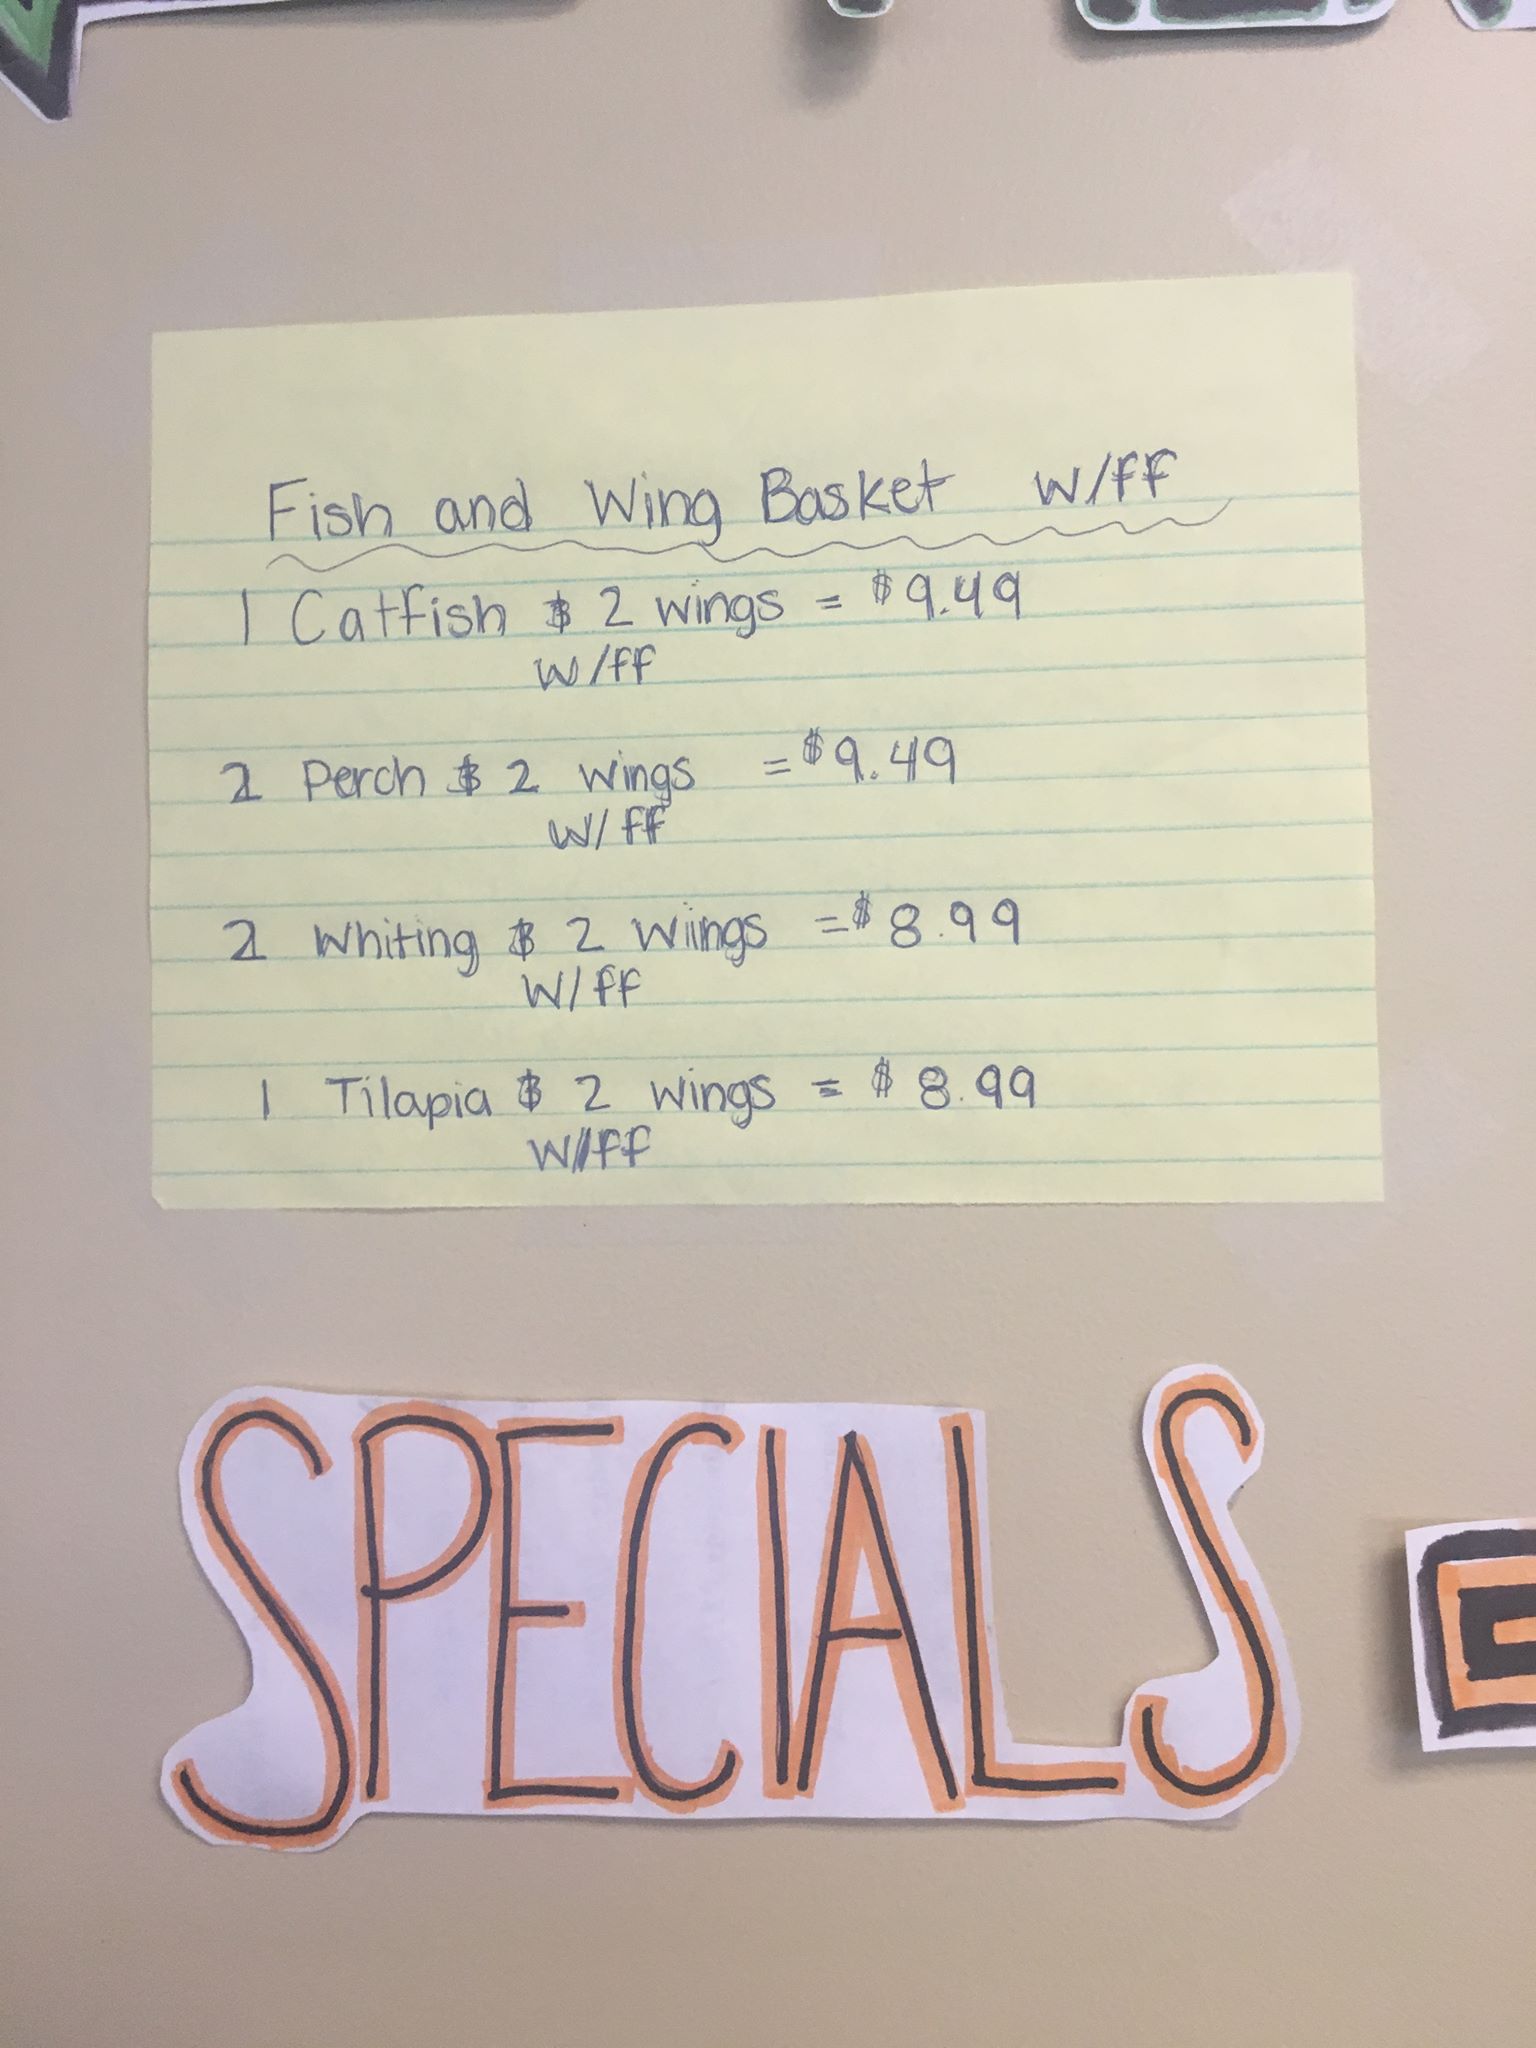 Fish and Wing Basket w/ff
1 Catfish & 2 wings = $9.49
w/ff
2 Perch & 2 wings = $9.49
w/ff
2 Whiting & 2 wiings = $8.99
w/ff
1 Tilapia & 2 wings = $8.99
w/ff
SPECIALS